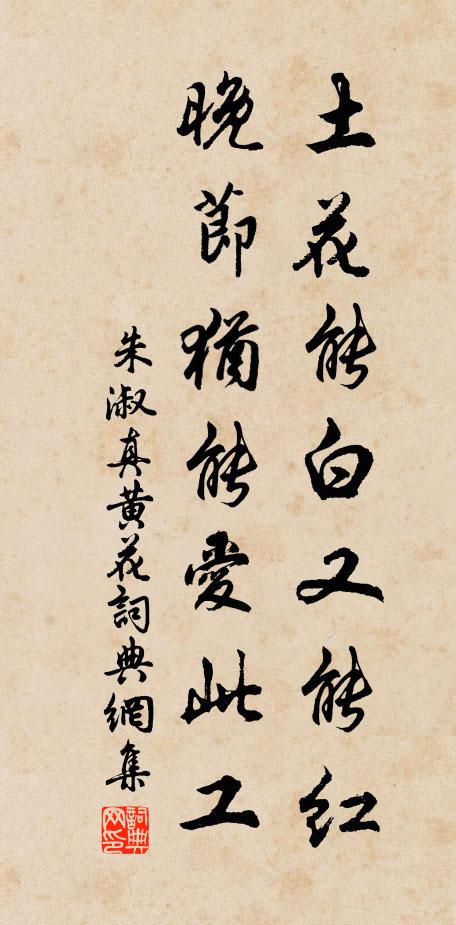 土花能白又能红
晚節猶能愛此工
朱淑真黄花詞典網集
詞典网印